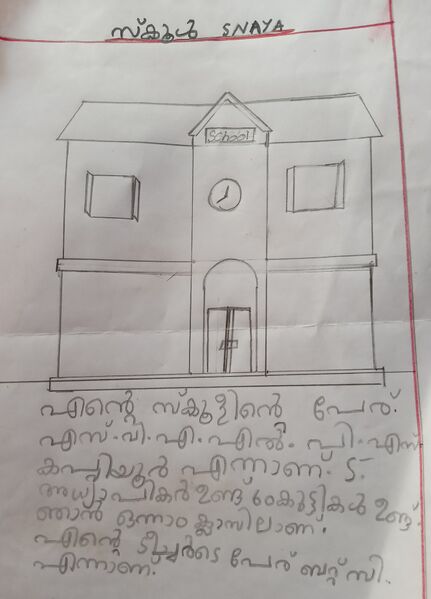 സ്കൂൾ SNAYA
School
എന്റെ സ്കൂളിന്റെ പേര്.
എസ്.വി.എ.എൽ. പി.എസ്
കപ്പിയൂർ എന്നാണ്. 5
അധ്യാപികർ ഉണ്ട് 60 കുട്ടികൾ ഉണ്ട്.
ഞാൻ ഒന്നാം ക്ലാസിലാണ്.
എന്റെ ടീച്ചർടെ പേര് ബറ്റ്സി.
എന്നാണ്.